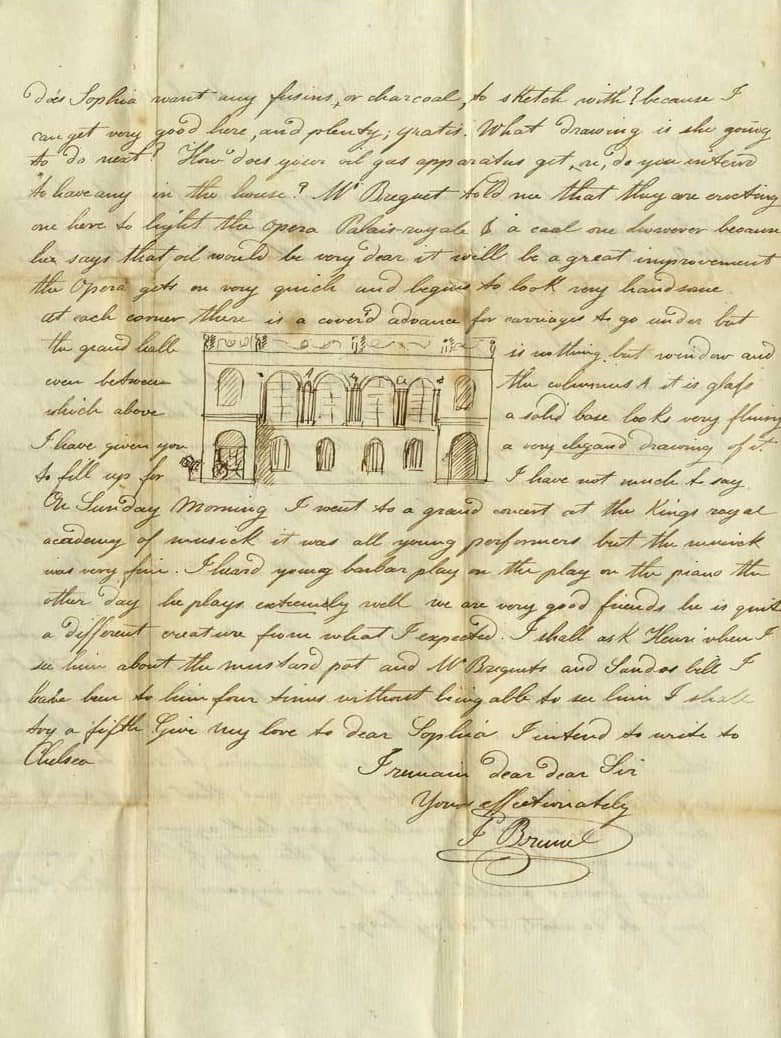 does Sophia want any fusins, or charcoal, to sketch with? because I
can get very good here, and plenty; gratis. What drawing is she going
to do next? How does your oil gas apparatus get on, do you intend
to have any in the house? Mr Breguet told me that they are erecting
one here to light the opera Palais-royale & a coal one however because
he says that oil would be very dear it will be a great improvement
the Opera gets on very quick and begins to look very handsome.
at each corner there is a cover'd advance for carriages to go under but
the grand halls is nothing but window and
even between the columns it is glass
which above a solid base looks very flimsy
I have given you a very elegand drawing of it.
to fill up for I have not much to say.
On Sunday Morning I went to a grand concert at the Kings royal
academy of musick it was all young performers but the musick
was very fine. I heard young barbar play on the play on the piano the
other day he plays extremely well we are very good friends he is quit
a different creature from what I expected. I shall ask Henri when I
see him about the mustard pot and Mr Breguets and Sandos bill I
have been to him four times without being able to see him I shall
try a fifth Give my love to dear Sophia I intend to write to
Chelsea
I remain dear dear Sir
Yours affectionately
I Brunel